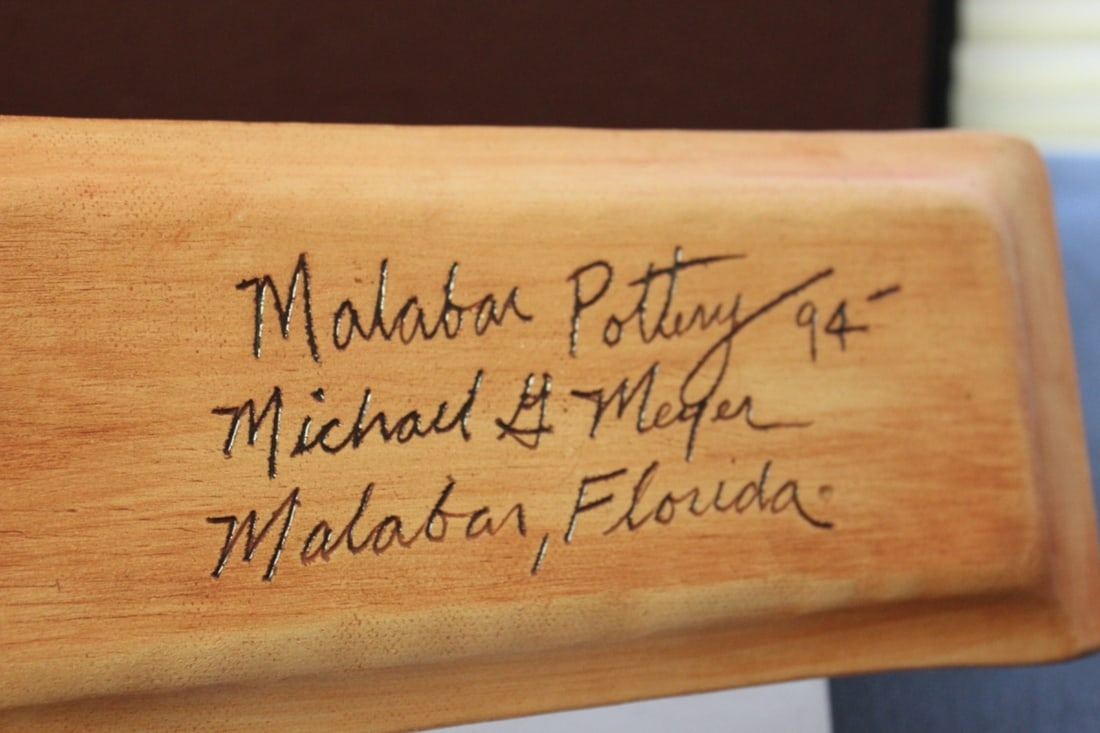 Malabar Pottery 94-
Michael G Meyer
Malabar, Florida.